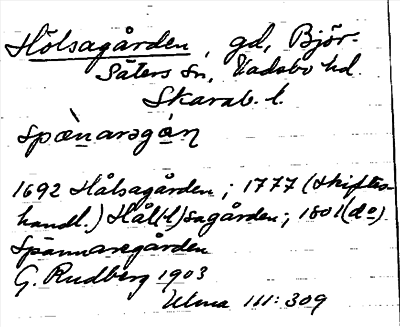 Hölsagården, gd, Björ-
Säters sn, Vadsbo hd.
Skarab. l.
spæ̀narɘgá̱n
1692 Hålsagården; 1777 (skiftes-
handl.) Hål(l)sagården; 1801 (do)
Spännaregården
G. Rudberg 1903
Ulma 111:309